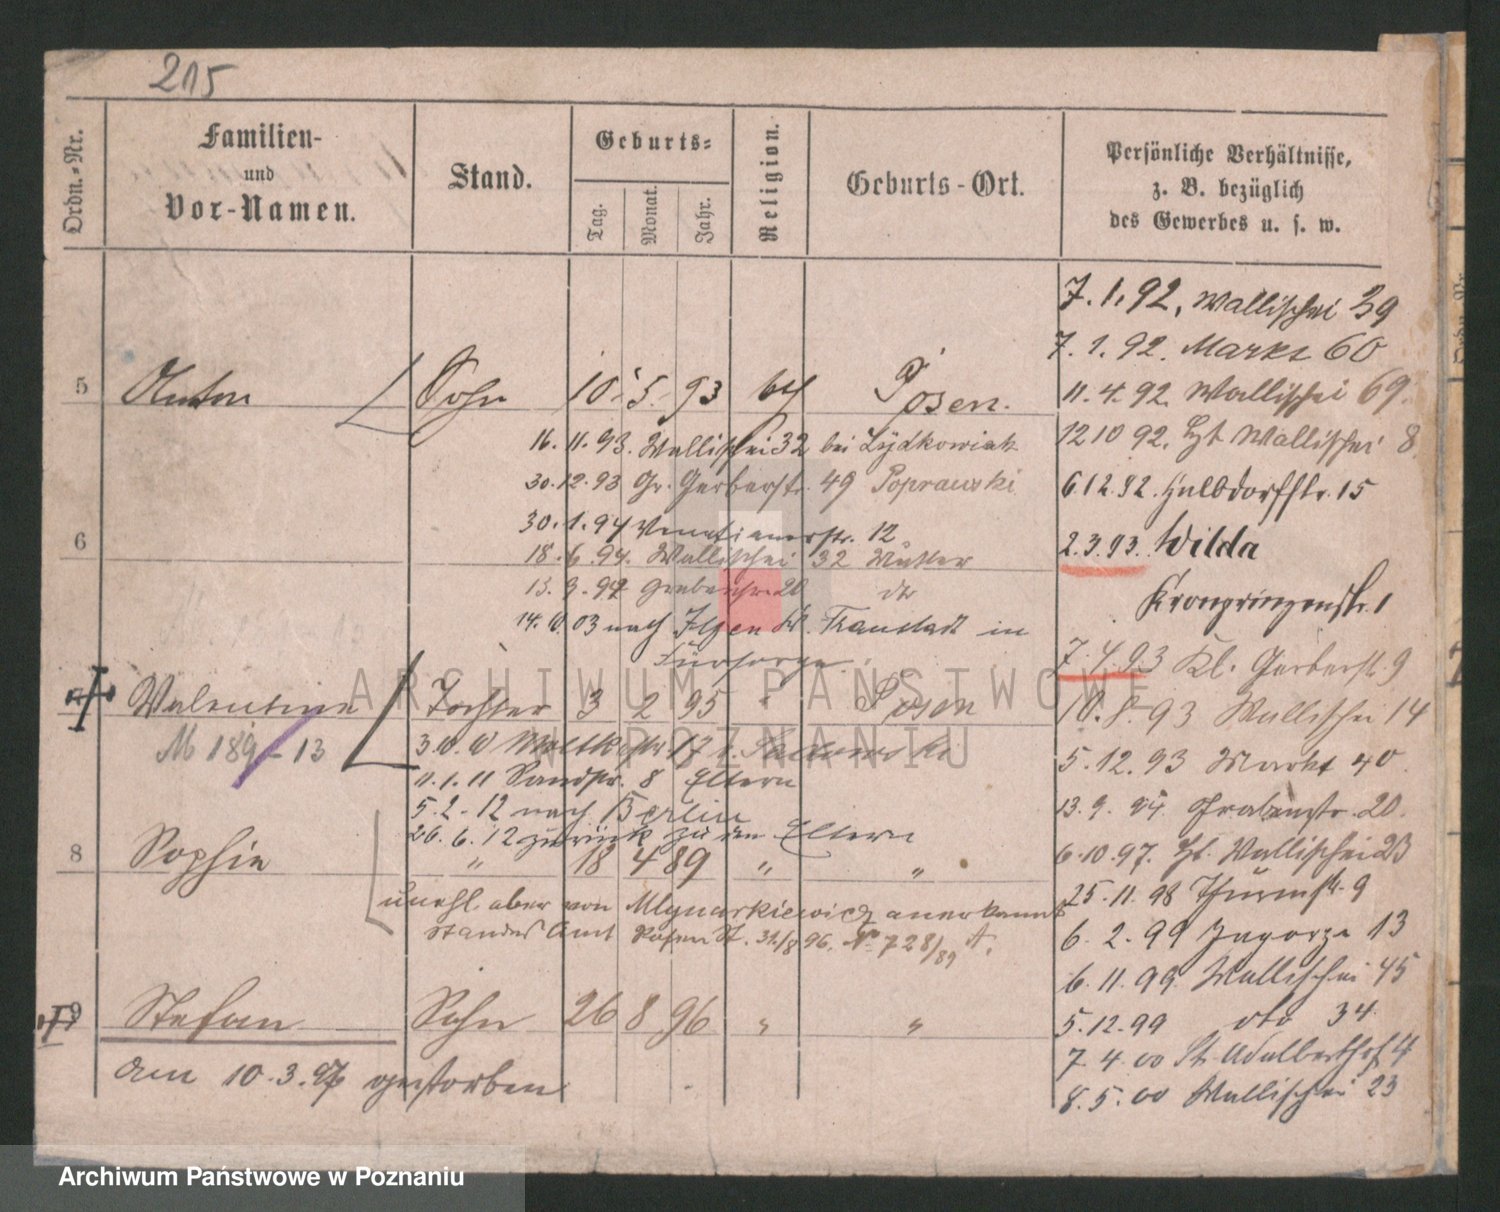 215
Ordn.-Nr.
Familien-
und
Vor-Namen.
Stand.
Geburts-
Tag.
Monat.
Jahr.
Religion.
Geburts-Ort.
Persönliche Verhältnisse,
z. B. bezüglich
des Gewerbes u. s. w.
7.1.92. Wallischei 39
7.1.92. Markt 60
5 Anton Sohn 10. 5. 93 Posen.
11.4.92. Wallischei 69.
16.11.93. Wallischei 32 bei Lydkowiak
12 10 92. Wallischei 8.
30.12.93 Gr. Gerberstr. 49 Poprawski
6.12.92. Halbdorfstr. 15
6
30.1.94 Venetianerstr. 12
2.3.93. Wilda
18.6.94. Wallischei 32 Mutter
Kronprinzenstr. 1
13.9.94 Grabenstr. 20
14.10.03 nach Kr. Fraustadt in
Fürsorge.
7.4.93 Kl. Gerberstr. 9
Valentine Tochter 3 2 95 " Posen
10.8.93 Wallischei 14
M 189-13
3.10.10 Moltkestr. 17
5.12.93 Markt 40.
11.1.11 Sandstr. 8 Eltern
5.2.12 nach Berlin
13.9.94 Grabenstr. 20.
26.6.12 zurück zu den Eltern
8 Sophie " 18 4 89 " "
6.10.97. Wallischei 23
unehl. aber von Mlynarkiewicz anerkannt
25.11.98 Thurmstr. 9
Standes Amt Posen St. 31/8 96. No 728/89 A.
6.2.99 Zagorze 13
6.11.99 Wallischei 45
9 Stefan Sohn 26 8 96 " "
5.12.99 dto 34
am 10.3.97 gestorben
7.4.00 St. Adalbertstr. 4
8.5.00 Wallischei 23
ARCHIWUM PAŃSTWOWE
W POZNANIU
Archiwum Państwowe w Poznaniu